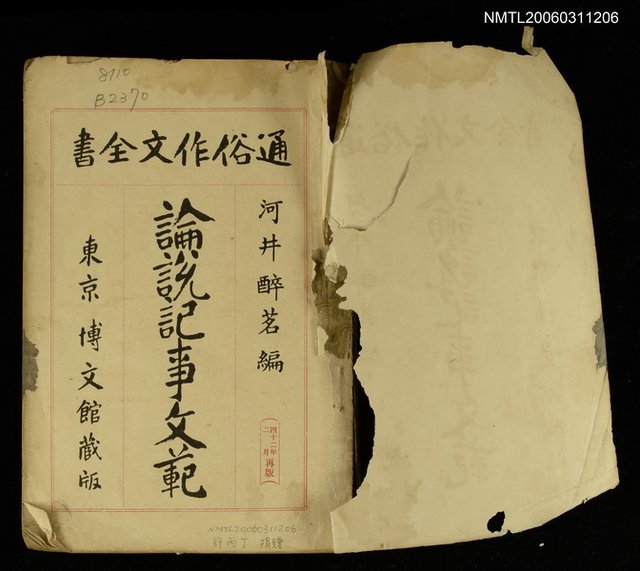 NMTL20060311206
8110
B2370
通俗作文全書
河井醉茗編
論説記事文範
東京 博文館藏版
四十二年
二月
再版
NMTL20060311206
許丙丁 捐贈